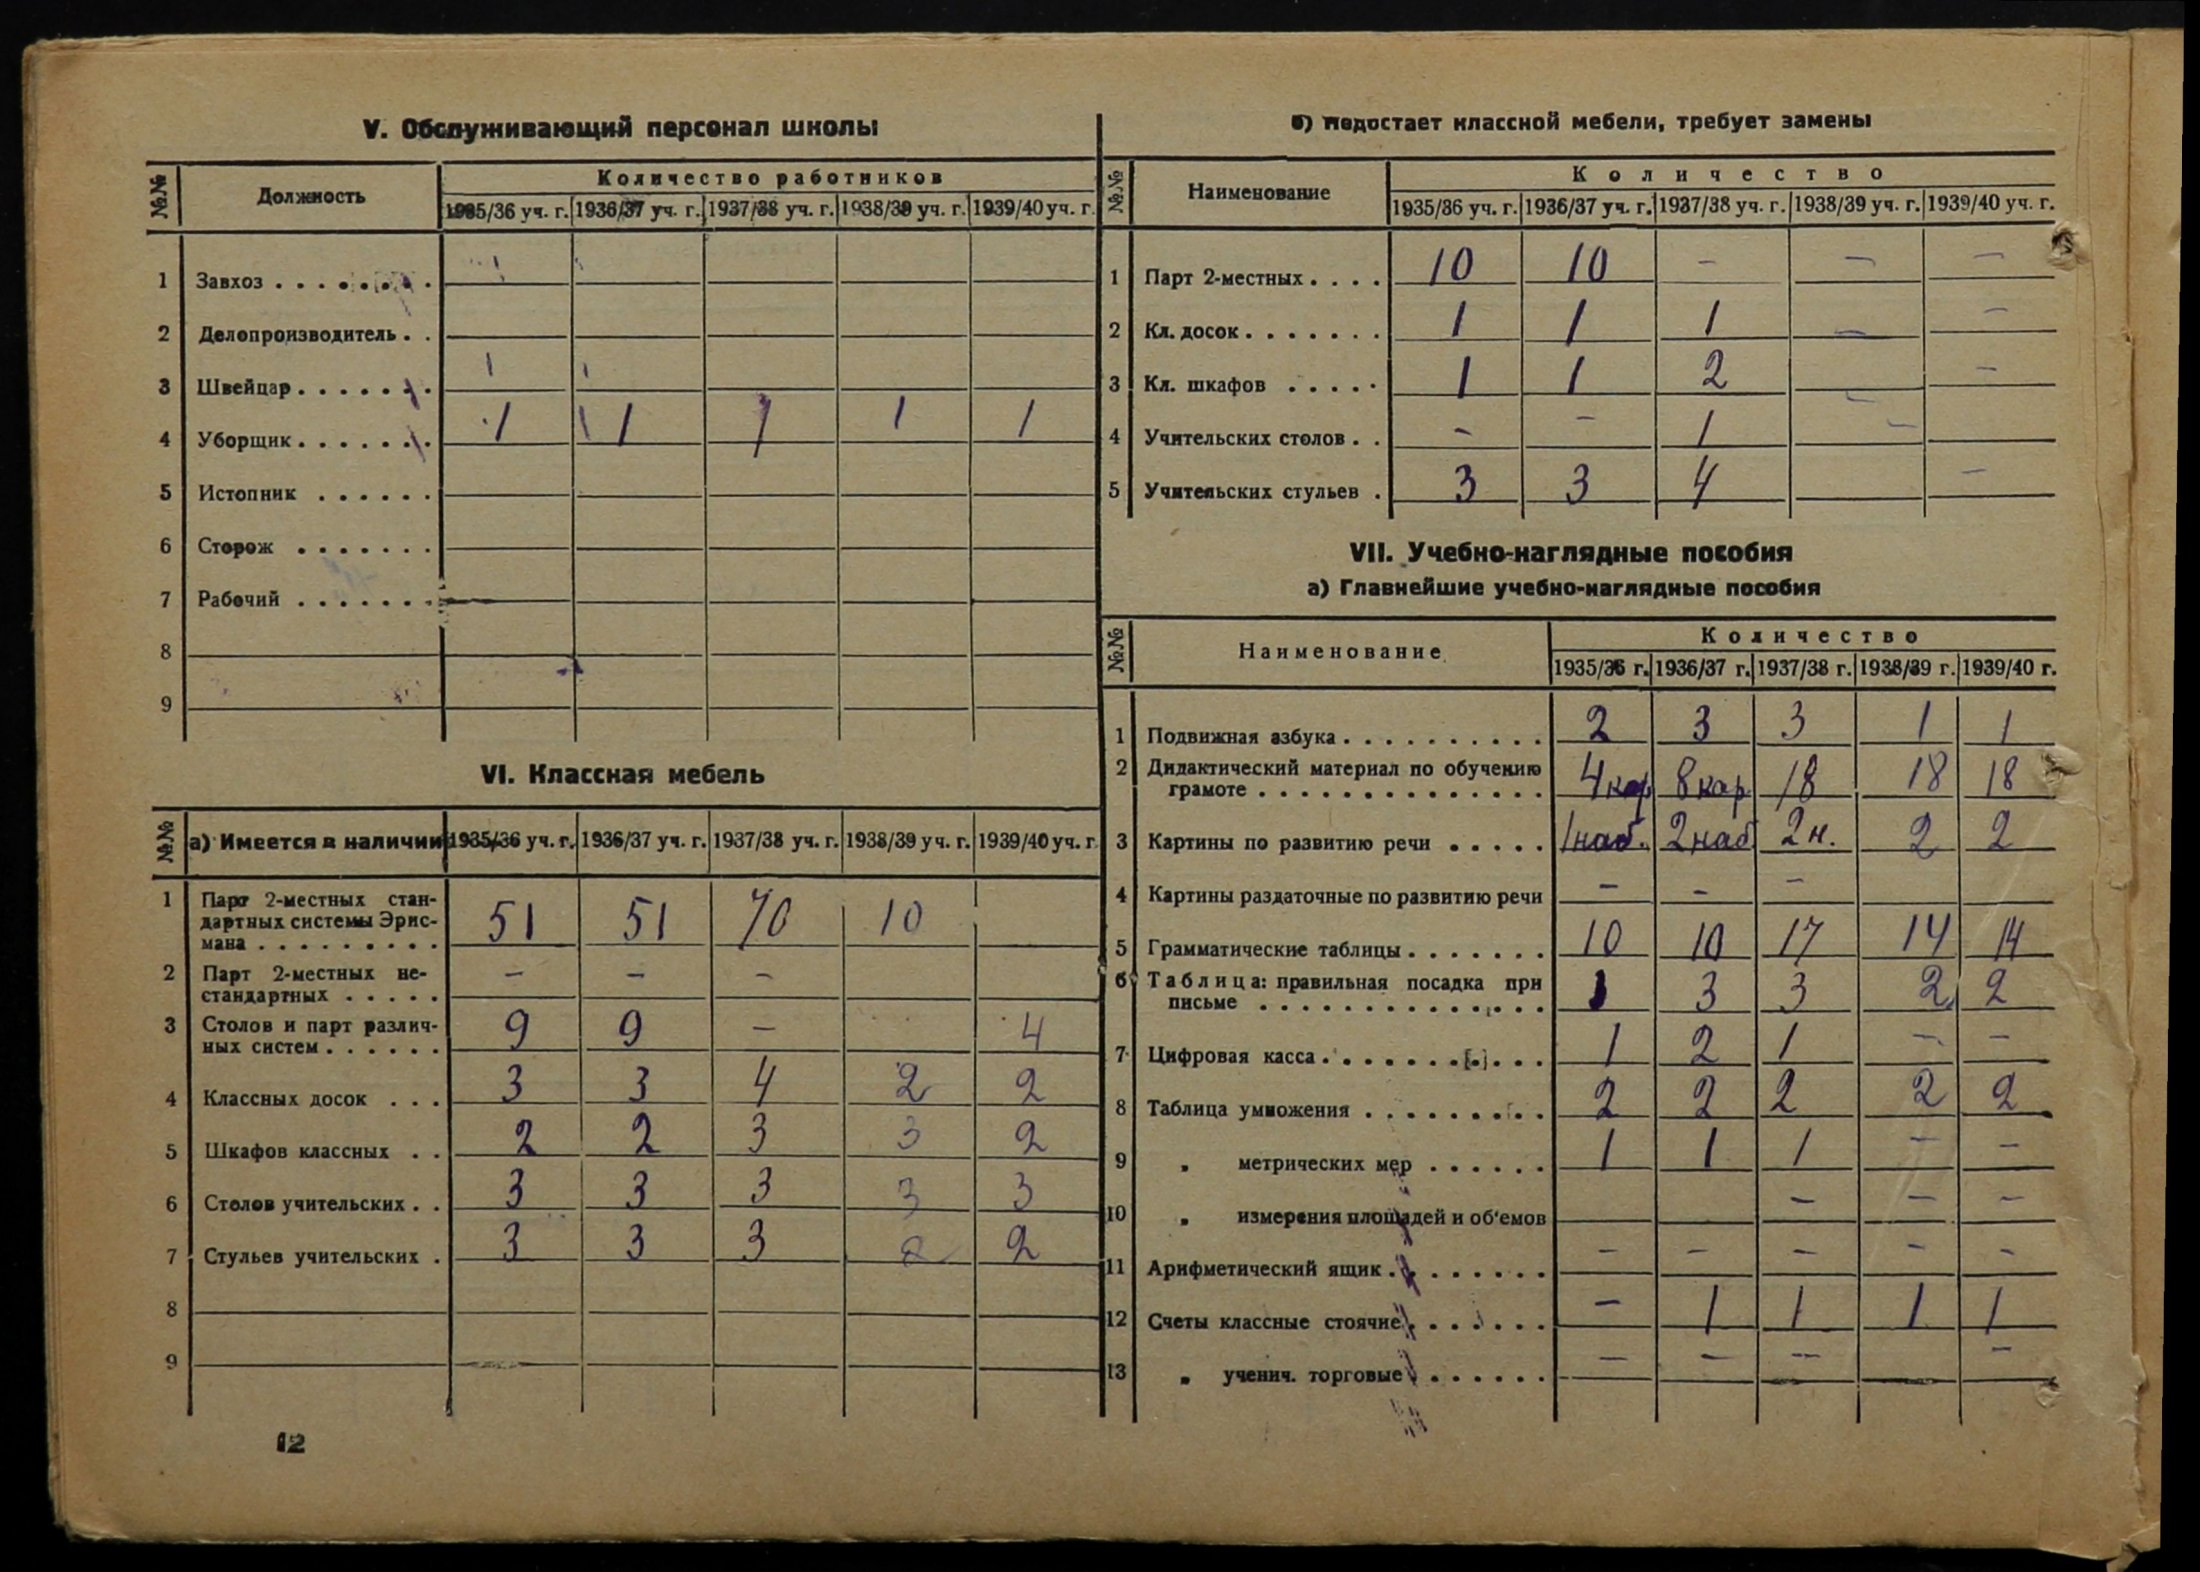 V. Обслуживающий персонал школы
№№ Должность Количество работников
1935/36 уч. г. 1936/37 уч. г. 1937/38 уч. г. 1938/39 уч. г. 1939/40 уч. г.
1 Завхоз
2 Делопроизводитель
3 Швейцар
4 Уборщик 1 1 1 1 1
5 Истопник
6 Сторож
7 Рабочий
8
9
VI. Классная мебель
№№ а) Имеется в наличии 1935/36 уч. г. 1936/37 уч. г. 1937/38 уч. г. 1938/39 уч. г. 1939/40 уч. г.
1 Парт 2-местных стан-
дартных системы Эрис-
мана 51 51 70 10
2 Парт 2-местных не-
стандартных – – –
3 Столов и парт различ-
ных систем 9 9 – 4
4 Классных досок 3 3 4 2 2
5 Шкафов классных 2 2 3 3 2
6 Столов учительских 3 3 3 3 3
7 Стульев учительских 3 3 3 2 2
8
9
12
б) Недостает классной мебели, требует замены
№№ Наименование Количество
1935/36 уч. г. 1936/37 уч. г. 1937/38 уч. г. 1938/39 уч. г. 1939/40 уч. г.
1 Парт 2-местных 10 10 – – –
2 Кл. досок 1 1 1 – –
3 Кл. шкафов 1 1 2 – –
4 Учительских столов – – 1 –
5 Учительских стульев 3 3 4 –
VII. Учебно-наглядные пособия
а) Главнейшие учебно-наглядные пособия
№№ Наименование Количество
1935/36 г. 1936/37 г. 1937/38 г. 1938/39 г. 1939/40 г.
1 Подвижная азбука 2 3 3 1 1
2 Дидактический материал по обучению
грамоте 4 кар. 8 кар 18 18 18
3 Картины по развитию речи 1 наб. 2 наб 2 н. 2 2
4 Картины раздаточные по развитию речи – – –
5 Грамматические таблицы 10 10 17 14 14
6 Таблица: правильная посадка при
письме 1 3 3 2 2
7 Цифровая касса 1 2 1 – –
8 Таблица умножения 2 2 2 2 2
9 „ метрических мер 1 1 1 – –
10 „ измерения площадей и об'емов – – –
11 Арифметический ящик – – – – –
12 Счеты классные стоячие – 1 1 1 1
13 „ ученич. торговые – – – –